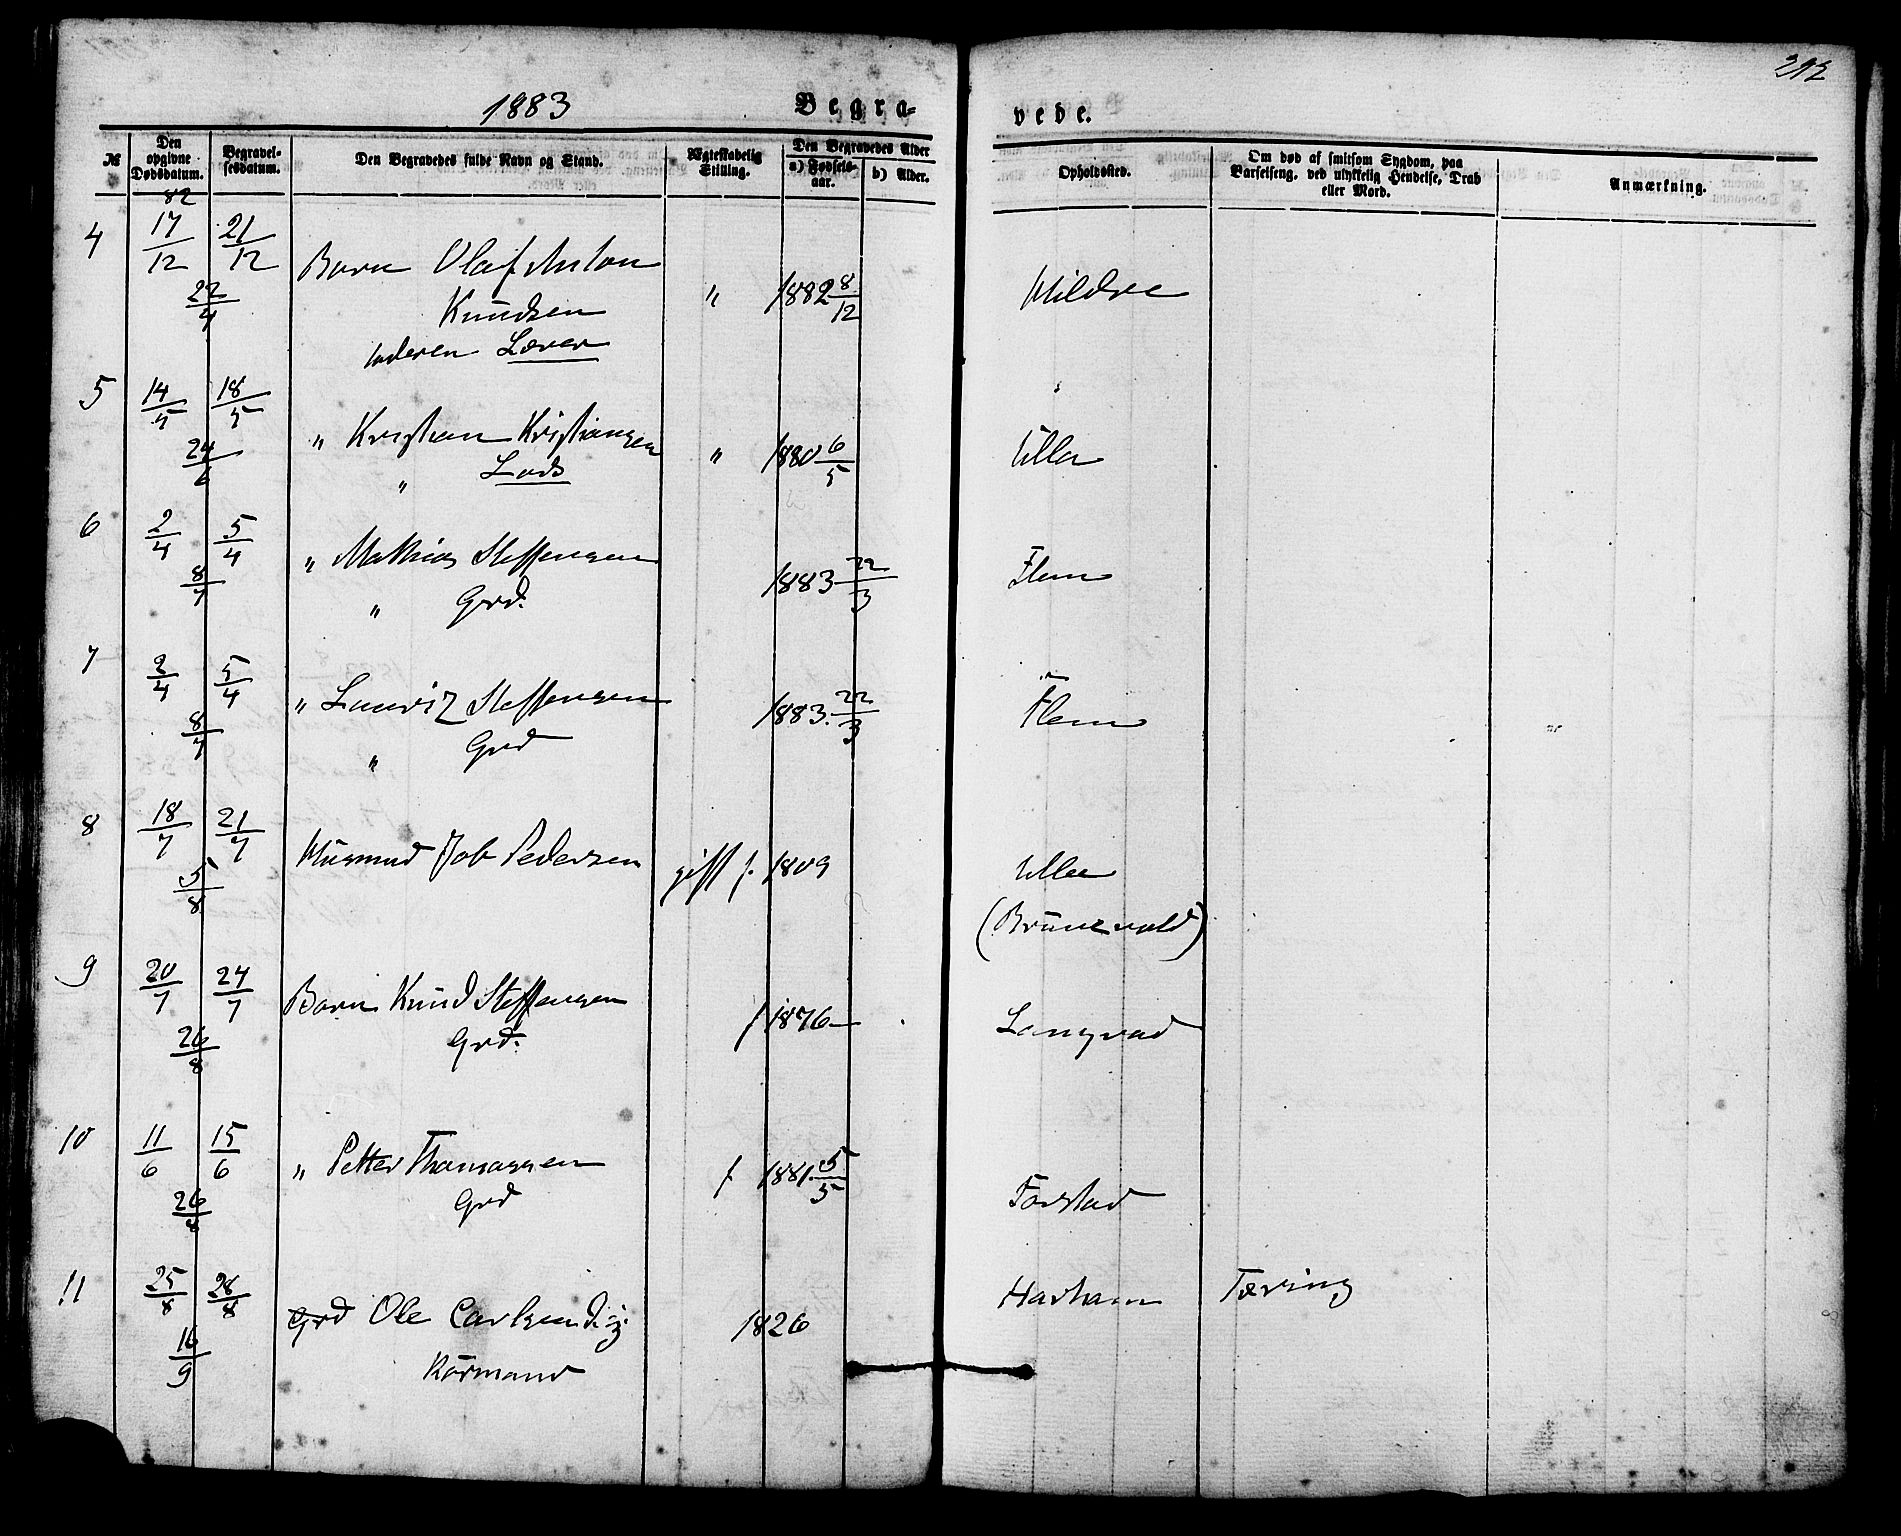 212
1883
Begra-
vede.
№
Den opgivne Dødsdatum.
Begravel-sesdatum.
Den Begravedes fulde Navn og Stand.
Ægteskabelig Stilling.
Den Begravedes Alder
a) Fødsels-aar.
b) Alder.
Opholdssted.
Om død af smitsom Sygdom, paa Barselseng, ved ulykkelig Hendelse, Drab eller Mord.
Anmærkning.
82
4 17/12 21/12 Barn Olaf Anton " 1882 8/12 Mildre
22/4 Knudsen
Lærer
5 14/5 18/5 " Kristian Kristiansen " 1880 6/5 Ulla
24/6 " Lods
6 2/4 5/4 " Mathias Steffensen 1883 22/3 Flem
8/7 " Grd.
7 2/4 5/4 " Lauritz Steffensen 1883. 22/3 Flem
8/7 " Grd
8 18/7 21/7 Husmand Job Pedersen gift f. 1809 Ulla
5/8 (Brunevold)
9 20/7 24/7 Barn Knud Steffensen f 1876 Langvad
26/8 Grd.
10 11/6 15/6 " Petter Thomassen f 1881. 5/5 Farstad
26/8 Grd
11 25/8 28/8 Grd Ole Carlsen 1826 Harham Tæring
16/9 Kårmand